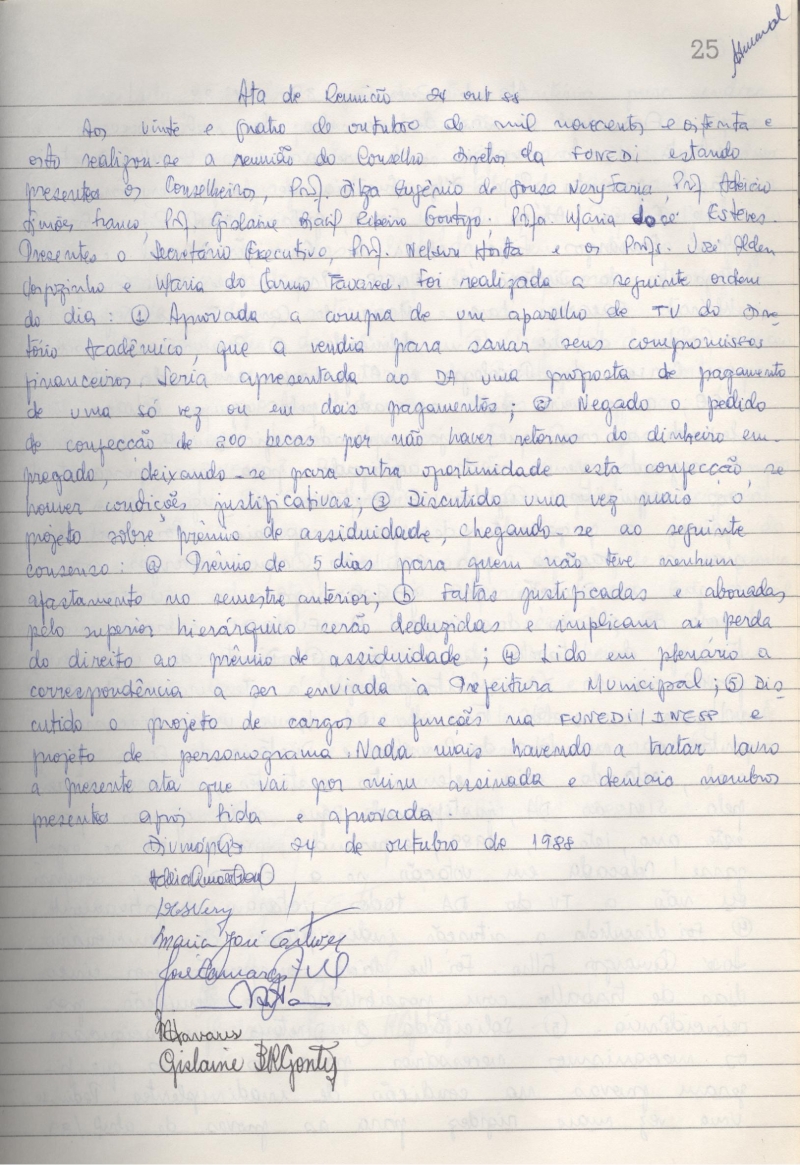 25
Ata de Reunião 24 out 88
Aos vinte e quatro de outubro de mil novecentos e oitenta e
oito realizou-se a reunião do Conselho Diretor da FUNEDI estando
presentes os Conselheiros, Prof. Dilza Eugênio de Souza Nery Faria, Prof. Adécio
Simões Franco, Prof. Gislaine Brasil Ribeiro Gontijo, Profa. Maria José Esteves.
Presentes o Secretário Executivo, Prof. Nelson Hosta e os Profs. José
e Maria do Carmo Tavares. Foi realizada a seguinte ordem
do dia: ① Aprovada a compra de um aparelho de TV do Dire
tório Acadêmico, que a vendia para sanar seus compromissos
financeiros. Seria apresentada ao DA uma proposta de pagamento
de uma só vez ou em dois pagamentos; ② Negado o pedido
de confecção de 200 becas por não haver retorno do dinheiro em-
pregado, deixando-se para outra oportunidade esta confecção, se
houver condições justificativas; ③ Discutido uma vez mais o
projeto sobre prêmio de assiduidade, chegando-se ao seguinte
consenso: ⓐ Prêmio de 5 dias para quem não teve nenhum
afastamento no semestre anterior; ⓑ Faltas justificadas e abonadas
pelo superior hierárquico serão deduzidas e implicam a perda
do direito ao prêmio de assiduidade; ④ Lido em plenário a
correspondência a ser enviada à Prefeitura Municipal; ⑤ Dis
cutido o projeto de cargos e funções na FUNEDI/INESP e
projeto de personograma. Nada mais havendo a tratar lavro
a presente ata que vai por mim assinada e demais membros
presentes após lida e aprovada.
Divinópolis 24 de outubro de 1988
DESNery
Maria José Esteves
José
Tavares
Gislaine BRGontijo